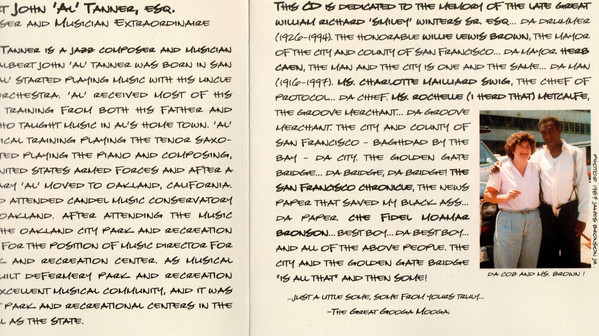 RT JOHN 'AL' TANNER, ESQ.
SER AND MUSICIAN EXTRAORDINAIRE
TANNER IS A JAZZ COMPOSER AND MUSICIAN
LBERT JOHN 'AL' TANNER WAS BORN IN SAN
AL' STARTED PLAYING MUSIC WITH HIS UNCLE
RCHESTRA. 'AL' RECEIVED MOST OF HIS
TRAINING FROM BOTH HIS FATHER AND
HO TAUGHT MUSIC IN AL'S HOME TOWN. 'AL'
ICAL TRAINING PLAYING THE TENOR SAXO-
TED PLAYING THE PIANO AND COMPOSING,
NITED STATES ARMED FORCES AND AFTER A
ARY 'AL' MOVED TO OAKLAND, CALIFORNIA.
D ATTENDED CANDEL MUSIC CONSERVATORY
OAKLAND. AFTER ATTENDING THE MUSIC
HE OAKLAND CITY PARK AND RECREATION
FOR THE POSITION OF MUSIC DIRECTOR FOR
K AND RECREATION CENTER. AS MUSICAL
UILT DEFERMERY PARK AND RECREATION
XCELLENT MUSICAL COMMUNITY, AND IT WAS
PARK AND RECREATIONAL CENTERS IN THE
L AS THE STATE.
THIS CD IS DEDICATED TO THE MEMORY OF THE LATE GREAT
WILLIAM RICHARD 'SMILEY' WINTERS SR. ESQ... DA DRUMMER
(1926-1994). THE HONORABLE WILLIE LEWIS BROWN, THE MAYOR
OF THE CITY AND COUNTY OF SAN FRANCISCO... DA MAYOR. HERB
CAEN, THE MAN AND THE CITY IS ONE AND THE SAME... DA MAN
(1916-1997). MS. CHARLOTTE MAILLIARD SWIG, THE CHIEF OF
PROTOCOL... DA CHIEF. MS. ROCHELLE (I HERD THAT) METCALFE,
THE GROOVE MERCHANT... DA GROOVE
MERCHANT. THE CITY AND COUNTY OF
SAN FRANCISCO - BAGHDAD BY THE
BAY - DA CITY. THE GOLDEN GATE
BRIDGE... DA BRIDGE, DA BRIDGE! THE
SAN FRANCISCO CHRONICLE, THE NEWS
PAPER THAT SAVED MY BLACK ASS...
DA PAPER. CHE FIDEL MOAMAR
BRONSON... BEST BOY... DA BEST BOY...
AND ALL OF THE ABOVE PEOPLE. THE
CITY AND THE GOLDEN GATE BRIDGE
"IS ALL THAT" AND THEN SOME!
PHOTO: 1987 JAMES BRONSON JR.
DA COB AND MS. BROWN !
...JUST A LITLE SOME, SOME FROM YOURS TRULY...
-THE GREAT GOOGA MOOGA.